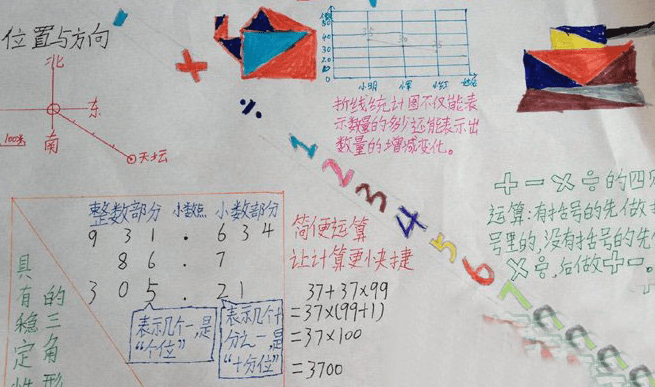 位置与方向
北
东
南
100米
天坛
50
40
30
20
10
0
小明
姓名
折线统计图不仅能表
示数量的多少还能表示出
数量的增减变化。
+
%
1
2
3
4
5
6
7
+－×÷的四
运算:有括号的先做
号里的,没有括号的先
×÷,后做+－.
整数部分 小数点 小数部分
9 3 1 . 6 3 4
8 6 . 7
3 0 5 . 2 1
表示几个一,是
"个位"
表示几个十
分之一,是
"十分位"
简便运算
让计算更快捷
37+37×99
=37×(99+1)
=37×100
=3700
具有稳定性
的三角形